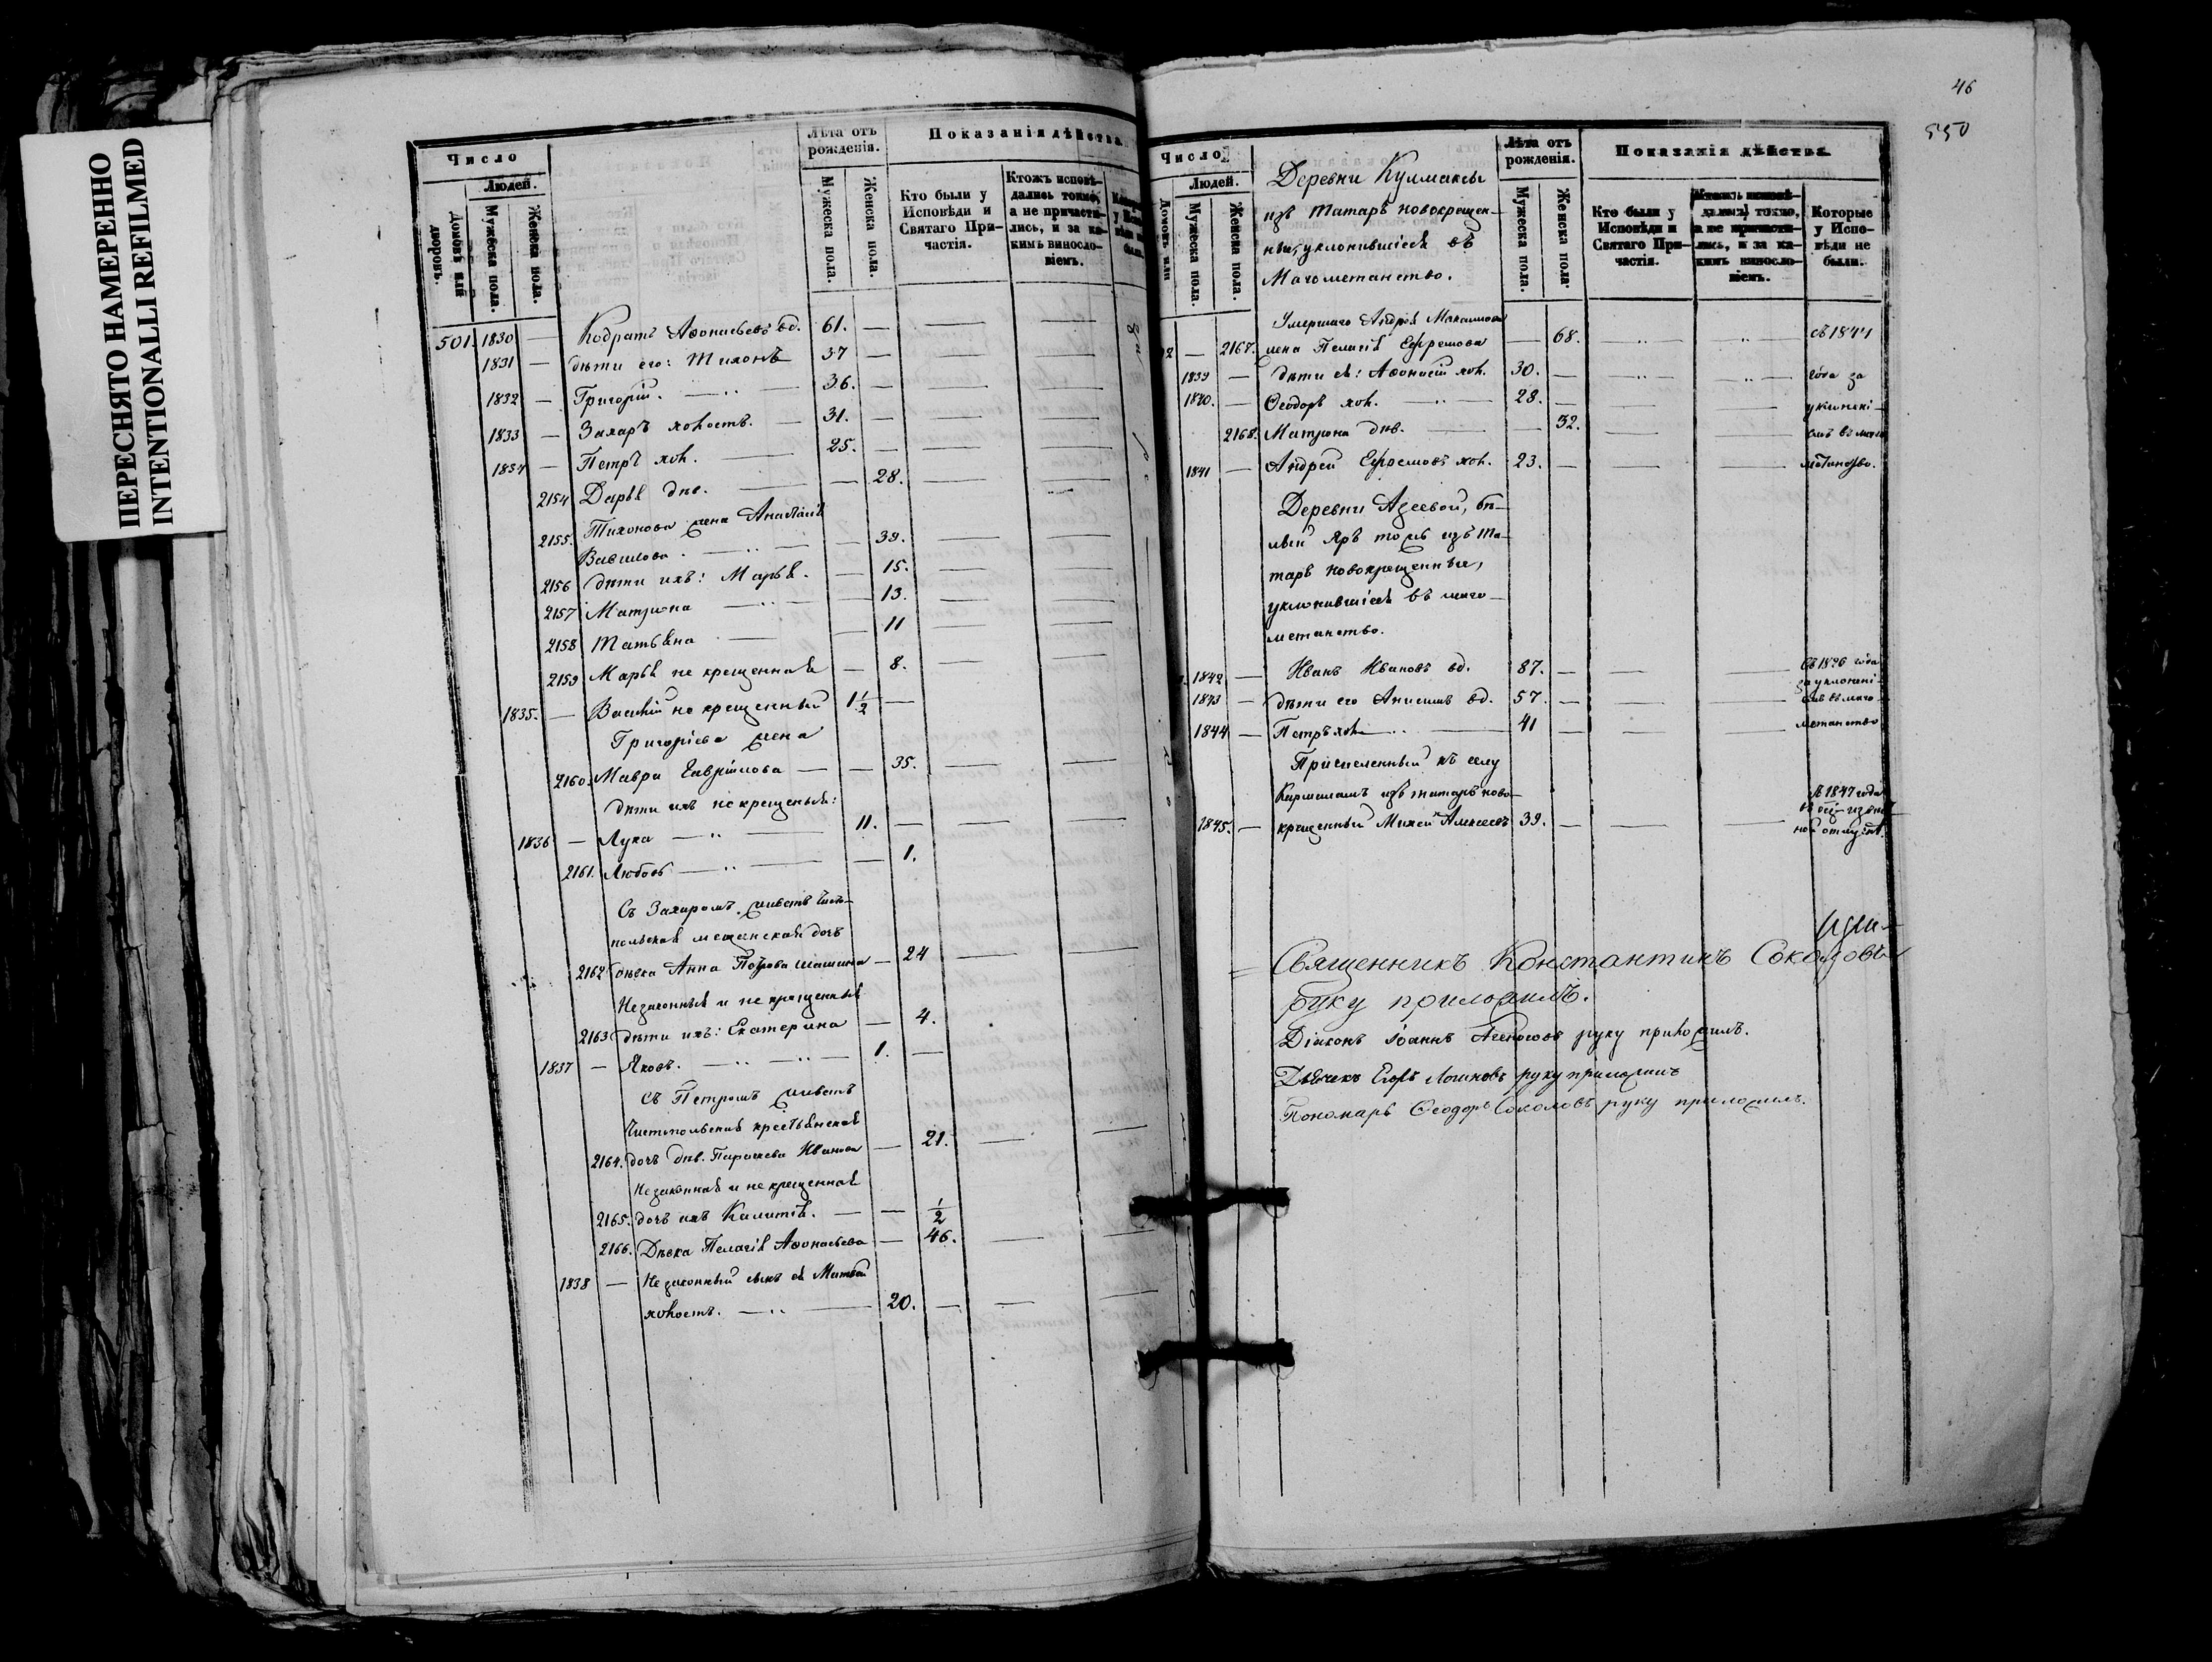 ПЕРЕСНЯТО НАМЕРЕННО
INTENTIONALLI REFILMED
Число
Людей.
Домовъ или дворовъ.
Мужеска пола.
Женска пола.
Лѣта отъ рожденія.
Мужеска пола.
Женска пола.
Показанія дѣйства
Кто были у Исповѣди и Святаго Причастія.
Ктожъ исповѣдались токмо, а не причастились, и за какимъ винословіемъ.
501. 1830 — Кодратъ Аѳонасьевъ вд. 61. —
1831 — дѣти его: Тихонъ 37 —
1832 — Григорій. — 36. —
1833 — Захаръ холостъ. — 31. —
1834 — Петръ хол. — 25. —
2154 Дарья дѣв. — 28.
Тихонова жена Анастасія
2155. Вавилова. — 39.
2156 дѣти ихъ: Марья. — 15.
2157 Матрона — 13.
2158 Татьяна — 11
2159 Марья не крещенная — 8.
1835. — Василій не крещенный 1 1/2 —
Григоріева жена
2160. Мавра Гаврилова — 35.
дѣти ихъ не крещеныя:
1836 — Лука — 11. —
2161. Любовь — 1.
Съ Захаромъ живетъ Чисто-
польская мещанская дочь
2162 дѣвка Анна Петрова Шашина — 24
Незаконныя и не крещенныя
2163 дѣти ихъ: Екатерина — 4.
1837 — Яковъ. — 1. —
Съ Петромъ живетъ
Чистопольская крестьянская
2164. дочь дѣв. Парасева Иванова — 21.
Незаконная и не крещенная
2165. дочь ихъ — 1/2
2166. Дѣвка Пелагія Аѳонасьева — 46.
1838 — Незаконный сынъ ея Матвѣй
холостъ. — 20. —
46
550
Число
Людей.
Мужеска пола.
Женска пола.
Лѣта отъ рожденія.
Мужеска пола.
Женска пола.
Показанія дѣйства
Кто были у Исповѣди и Святаго Причастія.
Ктожъ исповѣдались токмо, а не причастились, и за какимъ винословіемъ.
Которые у Исповѣди не были.
Деревни Кулмаксы
изъ татаръ новокрещен-
ные, уклонившіеся въ
Магометанство.
Умершаго Андрея Максимова
— 2167. жена Пелагія Ефремова — 68. съ 1844
1839 — дѣти ея: Аѳонасій хол. 30. — года за
1840. — Ѳеодоръ хол. — 28. — уклонені-
2168. Матрона дѣв. — 32. емъ въ маго
1841 — Андрей Ефремовъ хол. 23. — метанство.
Деревни Азеевой, Бѣ-
лый Яръ тожъ изъ та-
таръ новокрещенные,
уклонившіеся въ маго-
метанство.
1842 — Иванъ Ивановъ вд. 87. — Съ 1826 года
за уклонені-
1843 — дѣти его Анисимъ вд. 57. — емъ въ маго
1844 — Петръ хол. — 41 — метанство
Причисленный къ селу
Кармаламъ изъ татаръ ново-
1845. — крещенный Михей Алексеевъ 39. — съ 1847 года
Священникъ Константинъ Соколовъ
руку приложилъ.
Діаконъ Іоаннъ руку приложилъ.
Дьячекъ Егоръ Логиновъ руку приложилъ
Пономарь Ѳеодоръ Соколовъ руку приложилъ.